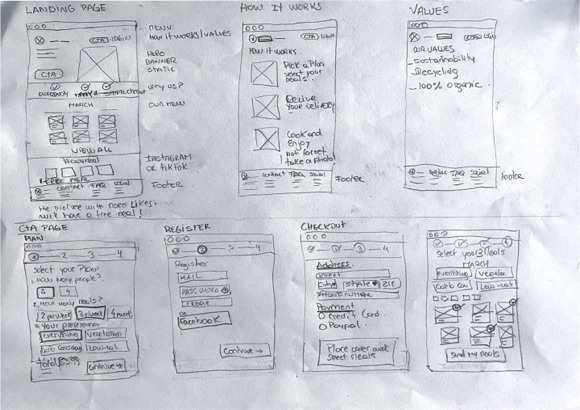 LANDING PAGE
CTA LOGIN
MENU
HOW IT WORKS/VALUES
HERO
BANNER
STATIC
CTA
WHY US?
MARCH
OUR MENU
VIEW ALL
INSTAGRAM
OR TIKTOK
contact FAQ social
Footer
The picture with more likes
will have a free meal!
HOW IT WORKS
CTA LOGIN
HOW IT WORKS
Pick a Plan
select your
meals
Receive
your delivery
Cook and
Enjoy
not forget
take a photo!
contact FAQ social
Footer
VALUES
OUR VALUES
- Sustainability
- Recycling
- 100% Organic
FAQ social
Footer
CTA PAGE
MAIN
1 2 3 4
Select your Plan
1. How many people?
2 4
2. How many meals?
3. Your preferences
Everything Vegetarian
Carb Conscious Low-cal
Continue →
REGISTER
3 4
Register
MAIL
PASSWORD
OR
Facebook
Continue →
CHECKOUT
3 4
Address
STREET
State ZIP
Payment
Credit Card
Paypal
Place order and
select meals
4
Select your meals
MARCH
Everything
Low-cal
Send my Meals